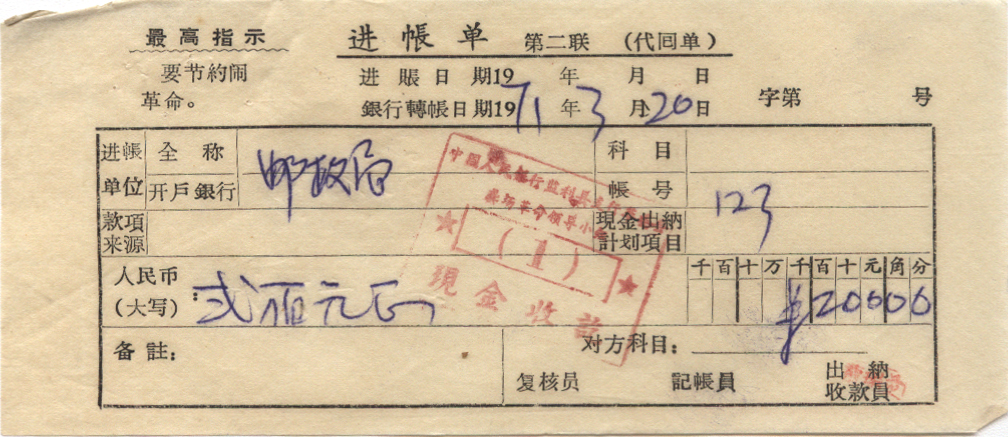 最高指示
要节約闹
革命。
进帳单 第二联 (代囘单)
进賬日期19 年 月 日
銀行轉帳日期1971年3月20日
字第 号
进帳单位 全称 邮政局 科目
开戶銀行 帳号 123
款項来源 現金出納計划項目
中國人民銀行監利县支行
革命領导小
★ (1) ★
現金收訖
人民币(大写): 弍佰元正
千百十万千百十元角分
¥20000
备註:
对方科目:
复核員 記帳員 出納收款員